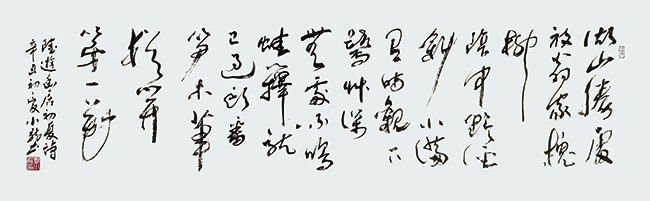 湖山勝處
放翁家槐
柳
陰中野徑
斜水滿
有時觀下
鷺草深
無處不鳴
蛙籜龍
已過頭番
筍木筆
猶開
第一花
陸遊幽居初夏詩
辛丑初夏小書